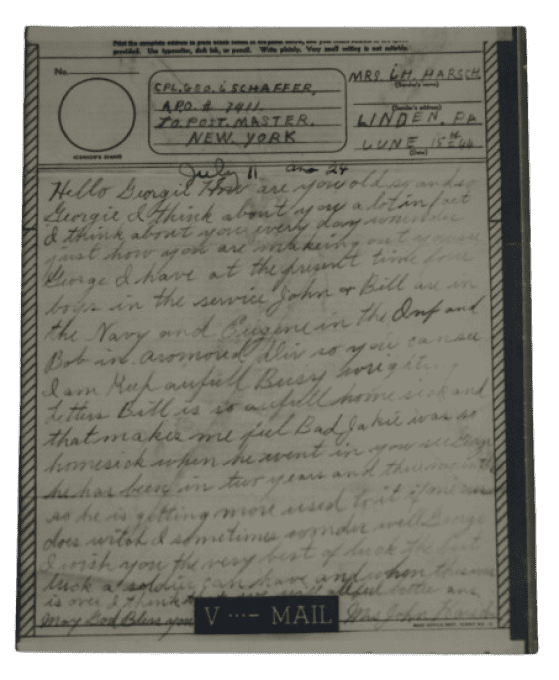 Print the complete address in plain block letters in the panel below, and your return address in the space
provided. Use typewriter, dark ink, or pencil. Write plainly. Very small writing is not suitable.
No.
CPL. GEO. SCHAFFER,
A.P.O. # 7911
TO POST. MASTER.
NEW. YORK
MRS. J.H. HARSCH
(Sender's name)
(Sender's address)
LINDEN, PA
JUNE 15
(Date)
(CENSOR'S STAMP)
July 11 ans 24
Hello Georgie How are you old so and so
Georgie I think about you a lot in fact
I think about you every day wonder
just how you are makeing out you see
George I have at the present time four
boys in the service John & Bill are in
the Navy and Eugene in the Inf and
Bob in aromored Div so you can see
I am Kep aufull Busy wrighting
Letters Bill is so aufull home sick and
that makes me feel Bad Jakie was so
homesick when he went in you see George
he has been in two years and three
so he is getting more used to it if one ever
does witch I sometimes wonder well George
I wish you the very best of luck the best
luck a soldier can have and when this war
is over I think
May God Bless you Mrs John Harsch
V ···– MAIL